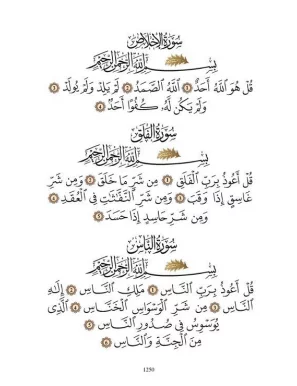 سُورَةُ الإِخْلَاصِ
بِسْمِ اللَّهِ الرَّحْمَٰنِ الرَّحِيمِ
قُلْ هُوَ اللَّهُ أَحَدٌ ١ اللَّهُ الصَّمَدُ ٢ لَمْ يَلِدْ وَلَمْ يُولَدْ ٣
وَلَمْ يَكُن لَّهُ كُفُوًا أَحَدٌ ٤
سُورَةُ الْفَلَقِ
بِسْمِ اللَّهِ الرَّحْمَٰنِ الرَّحِيمِ
قُلْ أَعُوذُ بِرَبِّ الْفَلَقِ ١ مِن شَرِّ مَا خَلَقَ ٢ وَمِن شَرِّ
غَاسِقٍ إِذَا وَقَبَ ٣ وَمِن شَرِّ النَّفَّٰثَٰتِ فِي الْعُقَدِ ٤
وَمِن شَرِّ حَاسِدٍ إِذَا حَسَدَ ٥
سُورَةُ النَّاسِ
بِسْمِ اللَّهِ الرَّحْمَٰنِ الرَّحِيمِ
قُلْ أَعُوذُ بِرَبِّ النَّاسِ ١ مَلِكِ النَّاسِ ٢ إِلَٰهِ
النَّاسِ ٣ مِن شَرِّ الْوَسْوَاسِ الْخَنَّاسِ ٤ الَّذِي
يُوَسْوِسُ فِي صُدُورِ النَّاسِ ٥
مِنَ الْجِنَّةِ وَالنَّاسِ ٦
1250